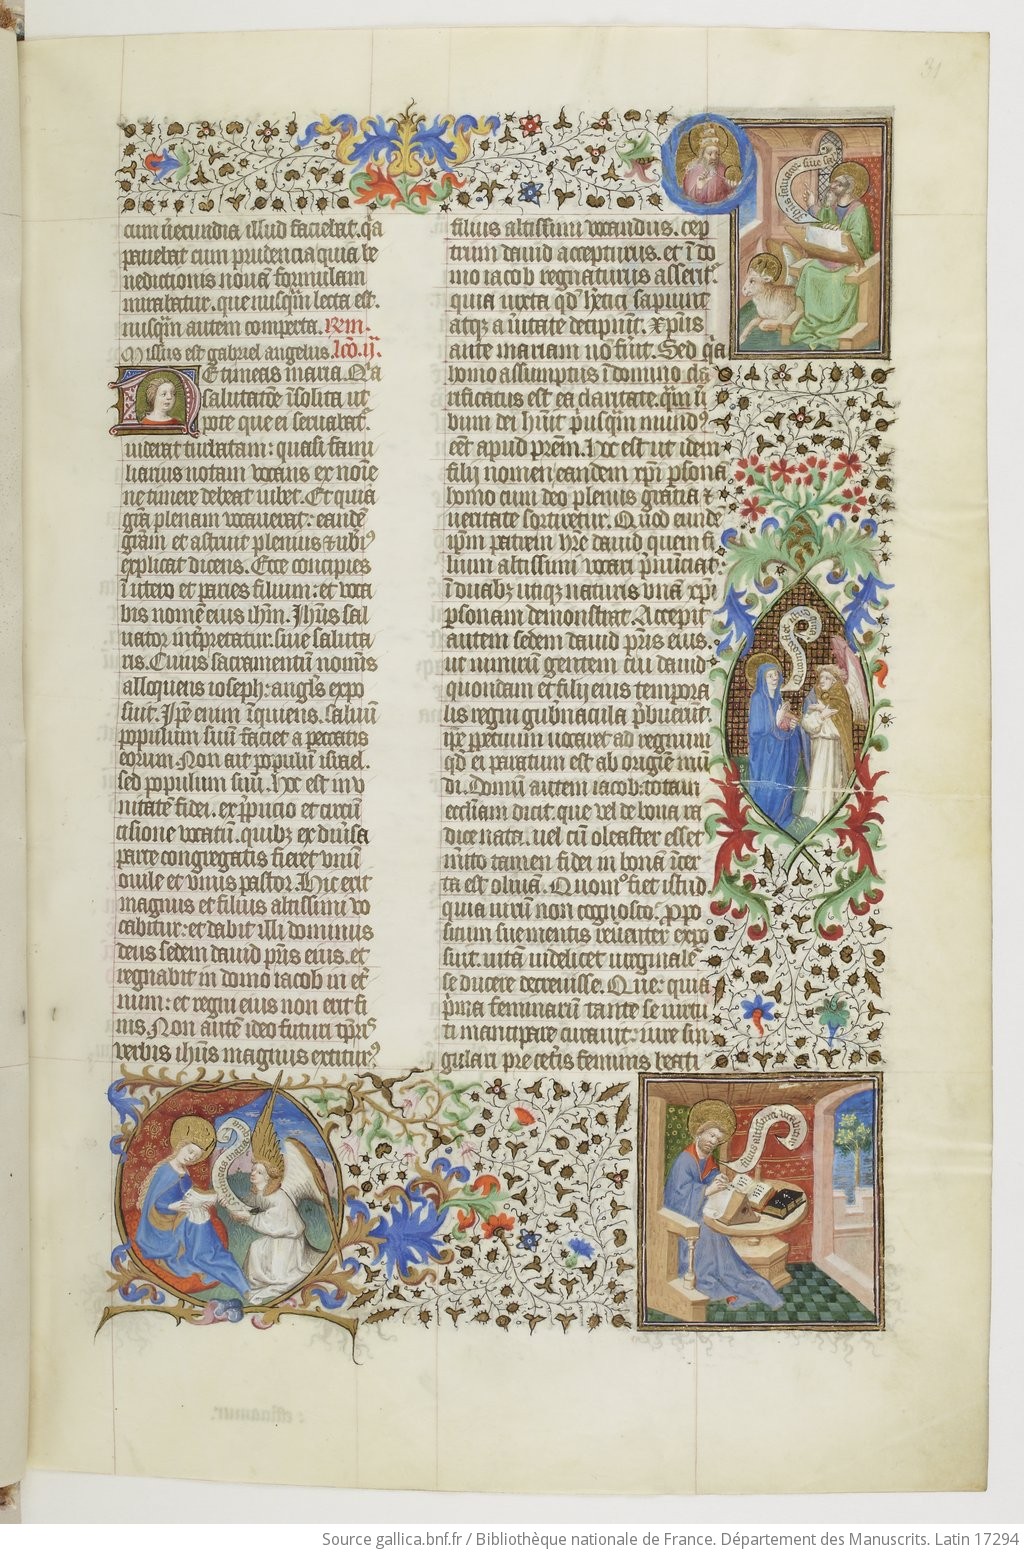 31
cum uerecundia illud faciebat. q̄a
pauebat cum prudencia quia be
nedictionis nouā formulam
mirabatur. que nusq̄m lecta est.
nusq̄m autem comperta. Rem.
Missus est gabriel angelus. lcō. ij.
Ne timeas maria. Q̄a
salutatōē īsolita ut
pote que ei seruabat̄
uiderat turbatam: quasi fami
liarius notam vocans ex noīe
ne timere debeat iubet. Et quia
gr̄a plenam vocauerat: eandē
grām et astruit plenius ⁊ ub̄iꝰ
explicat dicens. Ecce concipies
ī utero et paries filium: et voca
bis nomē eius ihm̄. Ihūs sal
uator īterpretatur. siue saluta
ris. Cuius sacramentū nomīs
alloquens ioseph: angl̄s expo
suit. Ip̄e enim īquiens. saluū
populum suū faciet a peccatis
eorum Non ait populū isrl̄ael.
sed populum suū. Hoc est in v
nitatē fidei. ex p̄pucio et circū
cisione vocatū. quibꝫ ex diūsa
parte congregatis fieret vnū
ouile et vnus pastor. Hic erit
magnus et filius altissimi vo
cabitur: et dabit illi dominus
deus sedem dauid pr̄is eius. et
regnabit in domo iacob in et̄
num: et regni eius non erit fi
nis. Non autē ideo futuri tp̄ris
verbis ihūs magnus extiturꝰ
filius altissimi vocandus. cep
trum dauid accepturus. et ī do
mo iacob regnaturus asserit̄
quia iuxta qd̄ hētici sapiunt
atqꝫ a ūitate decipiunt. xp̄ūs
ante mariam nō fuit. Sed q̄a
homo assumptus ī domino cla
rificatus est ea claritate. q̄m ū
bum dei hūit p̄usq̄m mundꝰ
eēt apud prēm. Hoc est ut idem
filij nomen eandem xp̄i psona
homo cum deo plenus gratia ⁊
ueritate sortiretur. Quod eunde
ip̄m patrem hr̄e dauid quem fi
lium altissimi vocari p̄nūciat:
ī duabꝫ utiqꝫ naturis vnā xp̄i
psonam demonstrat. Accepit
autem sedem dauid pr̄is eius.
ut nimirū gentem cui dauid
quondam et filij eius tempora
lis regni gubnacula p̄buerūt.
ip̄e p̄petuum uocaret ad regnum
qd̄ ei paratum est ab origīe mū
di. Domū autem iacob: totam
eccliam dicit. que vel de bona ra
dice nata. uel cū oleaster esset
m̄ito tamen fidei in bonā īcer
ta est oliuā. Quomō fiet istud
quia uirū non cognosco. Ppo
situm sue mentis reuēter expo
suit. uitā uidelicet uirginale
se ducere decreuisse. Que: quia
p̄ma feminarū tante se uirtu
ti mancipare curauit: iure sin
gulari pre cet̄is feminis beati
ihūs saluator siue sal
filius altissimi vocabitur
: estimamur.
Source gallica.bnf.fr / Bibliothèque nationale de France. Département des Manuscrits. Latin 17294